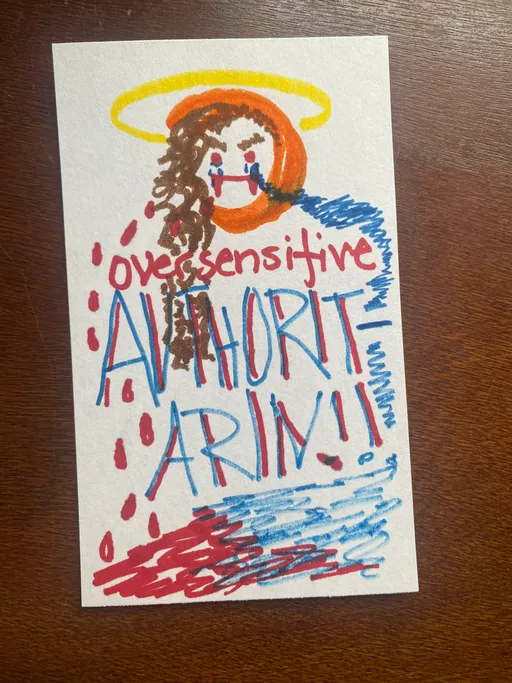 oversensitive
AUTHORIT-
ARIN!!